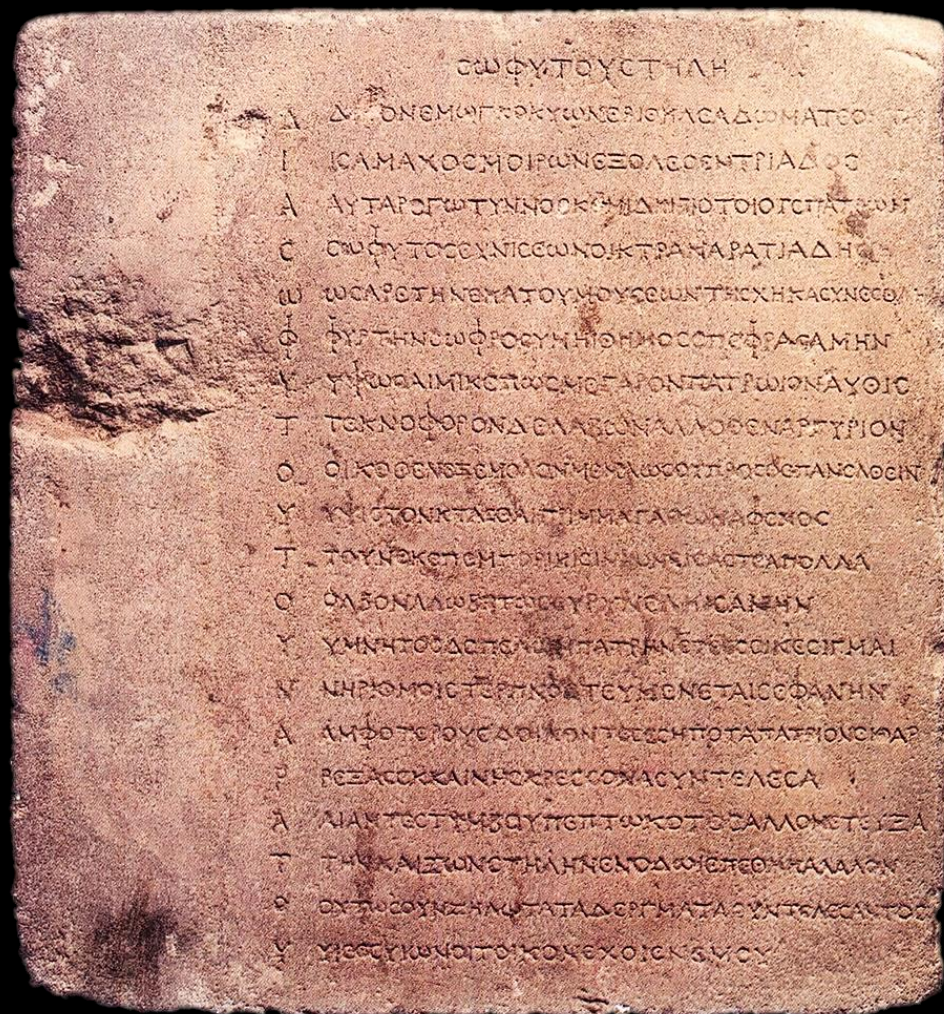 ϹΩΦΥΤΟΥϹΤΗΛΗ
Δ ΔΗΡΟΝΕΜΩΓΚΟΚΥΩΝΕΡΙΘΗΛΕΑΔΩΜΑΤΕΟΝΤΑ
Ι ΙϹΑΜΑΧΟϹΜΟΙΡΩΝΕΞΟΛΕϹΕΝΤΡΙΑΔΟϹ
Α ΑΥΤΑΡΕΓΩΤΥΝΝΟϹΚΟΜΙΔΗΙΒΙΟΤΟΙΟΤΕΠΑΤΡΩΝ
Ϲ ϹΩΦΥΤΟϹΕΥΝΙϹΕΩΝΟΙΚΤΡΑΝΑΡΑΤΙΑΔΗϹ
Ω ΩϹΑΡΕΤΗΝΕΚΑΤΟΥΜΟΥϹΕΩΝΤΗϹΧΗΚΑϹΥΝΕϹΘΛΗΙ
Φ ΦΥΡΤΗΝϹΩΦΡΟϹΥΝΗΙΘΗΜΟϹΕΠΕΦΡΑϹΑΜΗΝ
Υ ΥΨΩϹΑΙΜΙΚΕΠΩϹΜΕΓΑΡΟΝΠΑΤΡΩΙΟΝΑΥΘΙϹ
Τ ΤΕΚΝΟΦΟΡΟΝΔΕΛΑΒΩΝΑΛΛΟΘΕΝΑΡΓΥΡΙΟΝ
Ο ΟΙΚΟΘΕΝΕΞΕΜΟΛΟΝΜΕΜΑΩϹΟΥΠΡΟϹΘΕΠΑΝΕΛΘΕΙΝ
Υ ΥΨΙϹΤΟΝΚΤΑϹΘΑΙΠΡΙΜΜΑΓΑΘΩΝΑΦΕΝΟϹ
Τ ΤΟΥΝΕΚΕΠΕΜΠΟΡΙΗΙϹΙΝΙΩΝΕΙϹΑϹΤΕΑΠΟΛΛΑ
Ο ΟΛΒΟΝΑΛΩΒΗΤΟϹΕΥΡΥΝΕΛΗΙϹΑΜΗΝ
Υ ΥΜΝΗΤΟϹΔΕΠΕΛΩΠΑΤΡΗΝΕΤΕΕϹϹΙΝΕϹΙΓΜΑΙ
Ν ΝΗΡΙΘΜΟΙϹΤΕΡΠΝΟϹΤΕΥΜΕΝΕΤΑΙϹΕΦΑΝΗΝ
Α ΑΜΦΟΤΕΡΟΥϹΔΟΙΚΟΝΤΕϹΕϹΗΠΟΤΑΠΑΤΡΙΟΝΕΙΘΑΡ
Ρ ΡΕΞΑϹΕΚΚΑΙΝΗϹΚΡΕϹϹΟΝΑϹΥΝΤΕΛΕϹΑ
Α ΑΙΑΝΤΕϹΤΥΜΒΟΥΠΕΠΤΩΚΟΤΟϹΑΛΛΟΝΕΤΕΥΞΑ
Τ ΤΗΝΚΑΙΖΩΝϹΤΗΛΗΝΕΝΟΔΩΙΕΠΕΘΗΚΑΛΑΛΟΝ
Ο ΟΥΤΩϹΟΥΝΖΗΛΩΤΑΤΑΔΕΡΓΜΑΤΑϹΥΝΤΕΛΕϹΑΝΤΟϹ
Υ ΥΙΕϹΥΙΩΝΟΙΤΟΙΚΟΝΕΧΟΙΕΝΕΜΟΥ